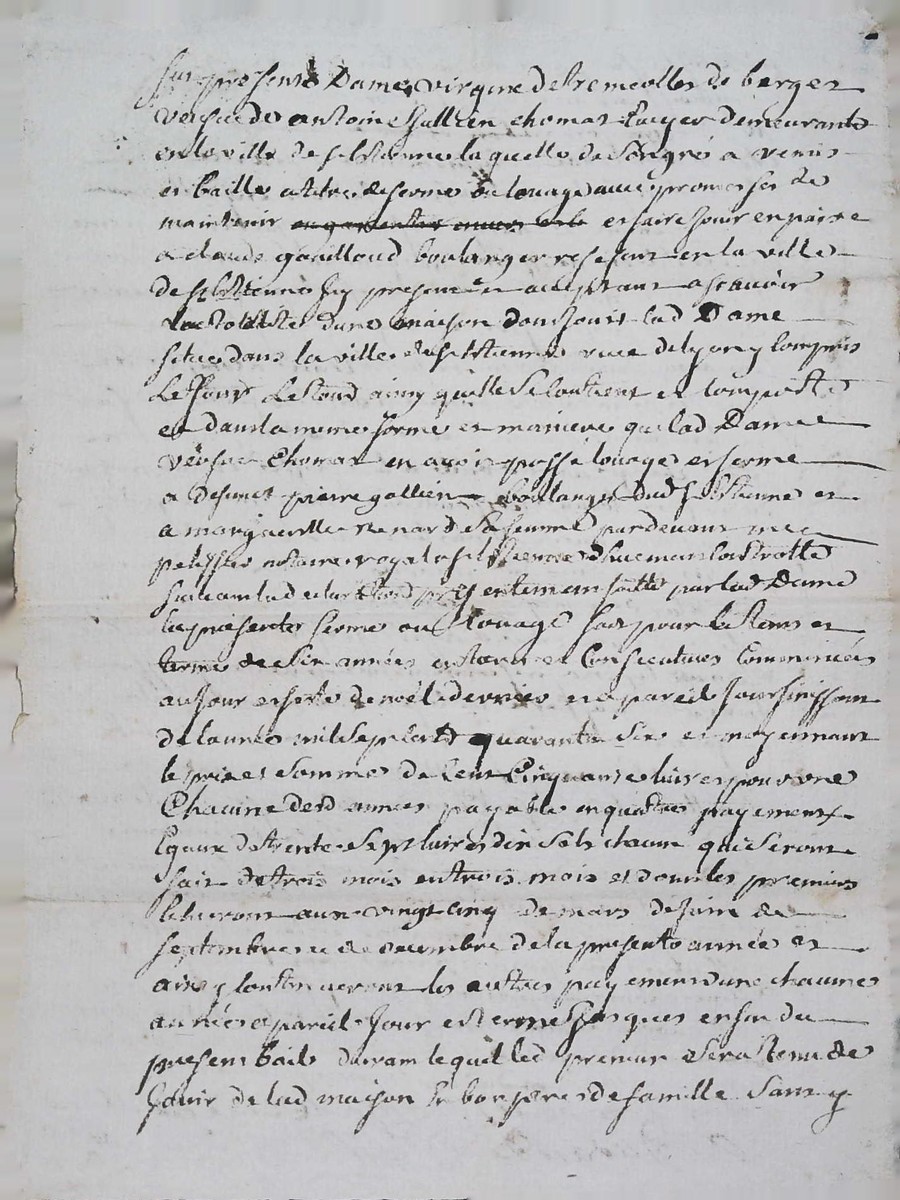 fut presente Dame virginie de tremeolles de berges
veufve de antoine hallien thomas Ecuyer demeurante
en la ville de st Etienne laquelle de son gré a remis
et baille a titre de ferme ou louage avec promesses de
maintenir et faire jouir en paix
a claude gailloud boulanger resident en la ville
de st Etienne jcy present et acceptant a scavoir
La totalité dune maison dont jouit lad Dame
située dans la ville de st Etienne rue de lyon y compris
Le four ainsy quelle se contient et comporte
et dans la meme forme et maniere que lad Dame
veufve thomas en avoit passé louage et ferme
a defunct pierre gallien boulanger dud st Etienne et
a margueritte renard sa femme pardevant me
pelissier notaire royal a st Etienne
presentement par lad Dame
la presente ferme ou louage fait pour le tems et
terme de six années entieres et Consecutives Commencées
au jour et feste de noel dernier et a pareil jour finissant
de lannée mil sept cent quarante six et moyennant
le prix et somme de Cent Cinquante livres pour une
Chacune desd années payable en quatre payements
Egaux de trente sept livres dix sols chacun qui seront
fait de trois mois en trois mois et dont les premiers
echeront aux vingt cinq de mars de juin de
septembre et de decembre de la presente année et
ainsy continueront les autres payements dune chacune
années a pareil jour et terme jusques en fin du
present bail durant lequel led preneur sera tenu de
jouir de lad maison en bon pere de famille sans y